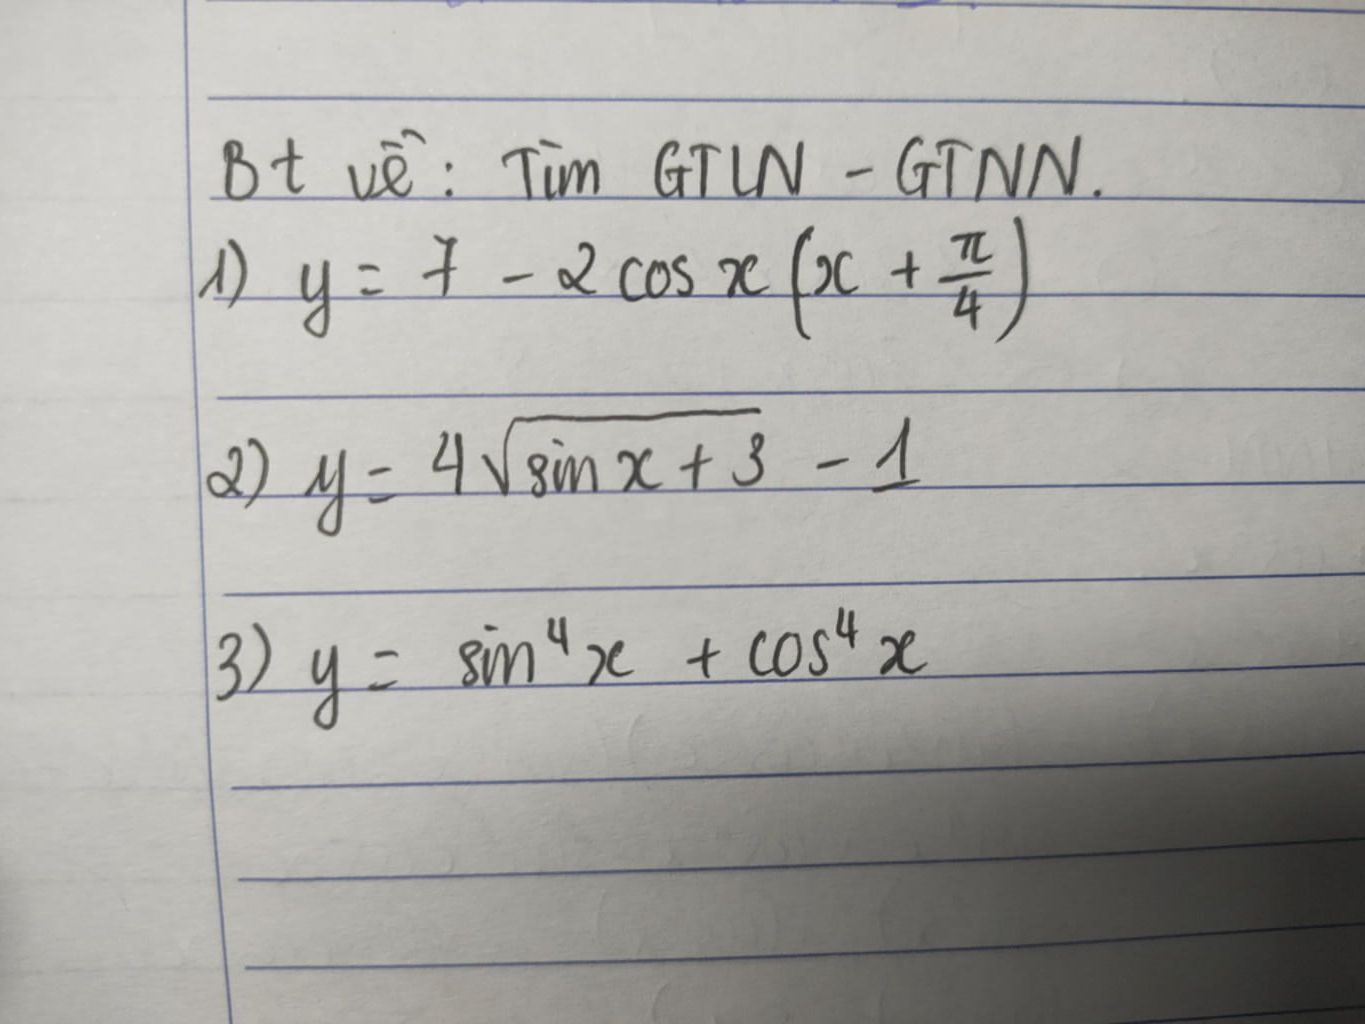 Bt về: Tìm GTLN - GTNN.
1) y = 7 - 2 cos x (x + π/4)
2) y = 4√(sin x + 3) - 1
3) y = sin⁴x + cos⁴x